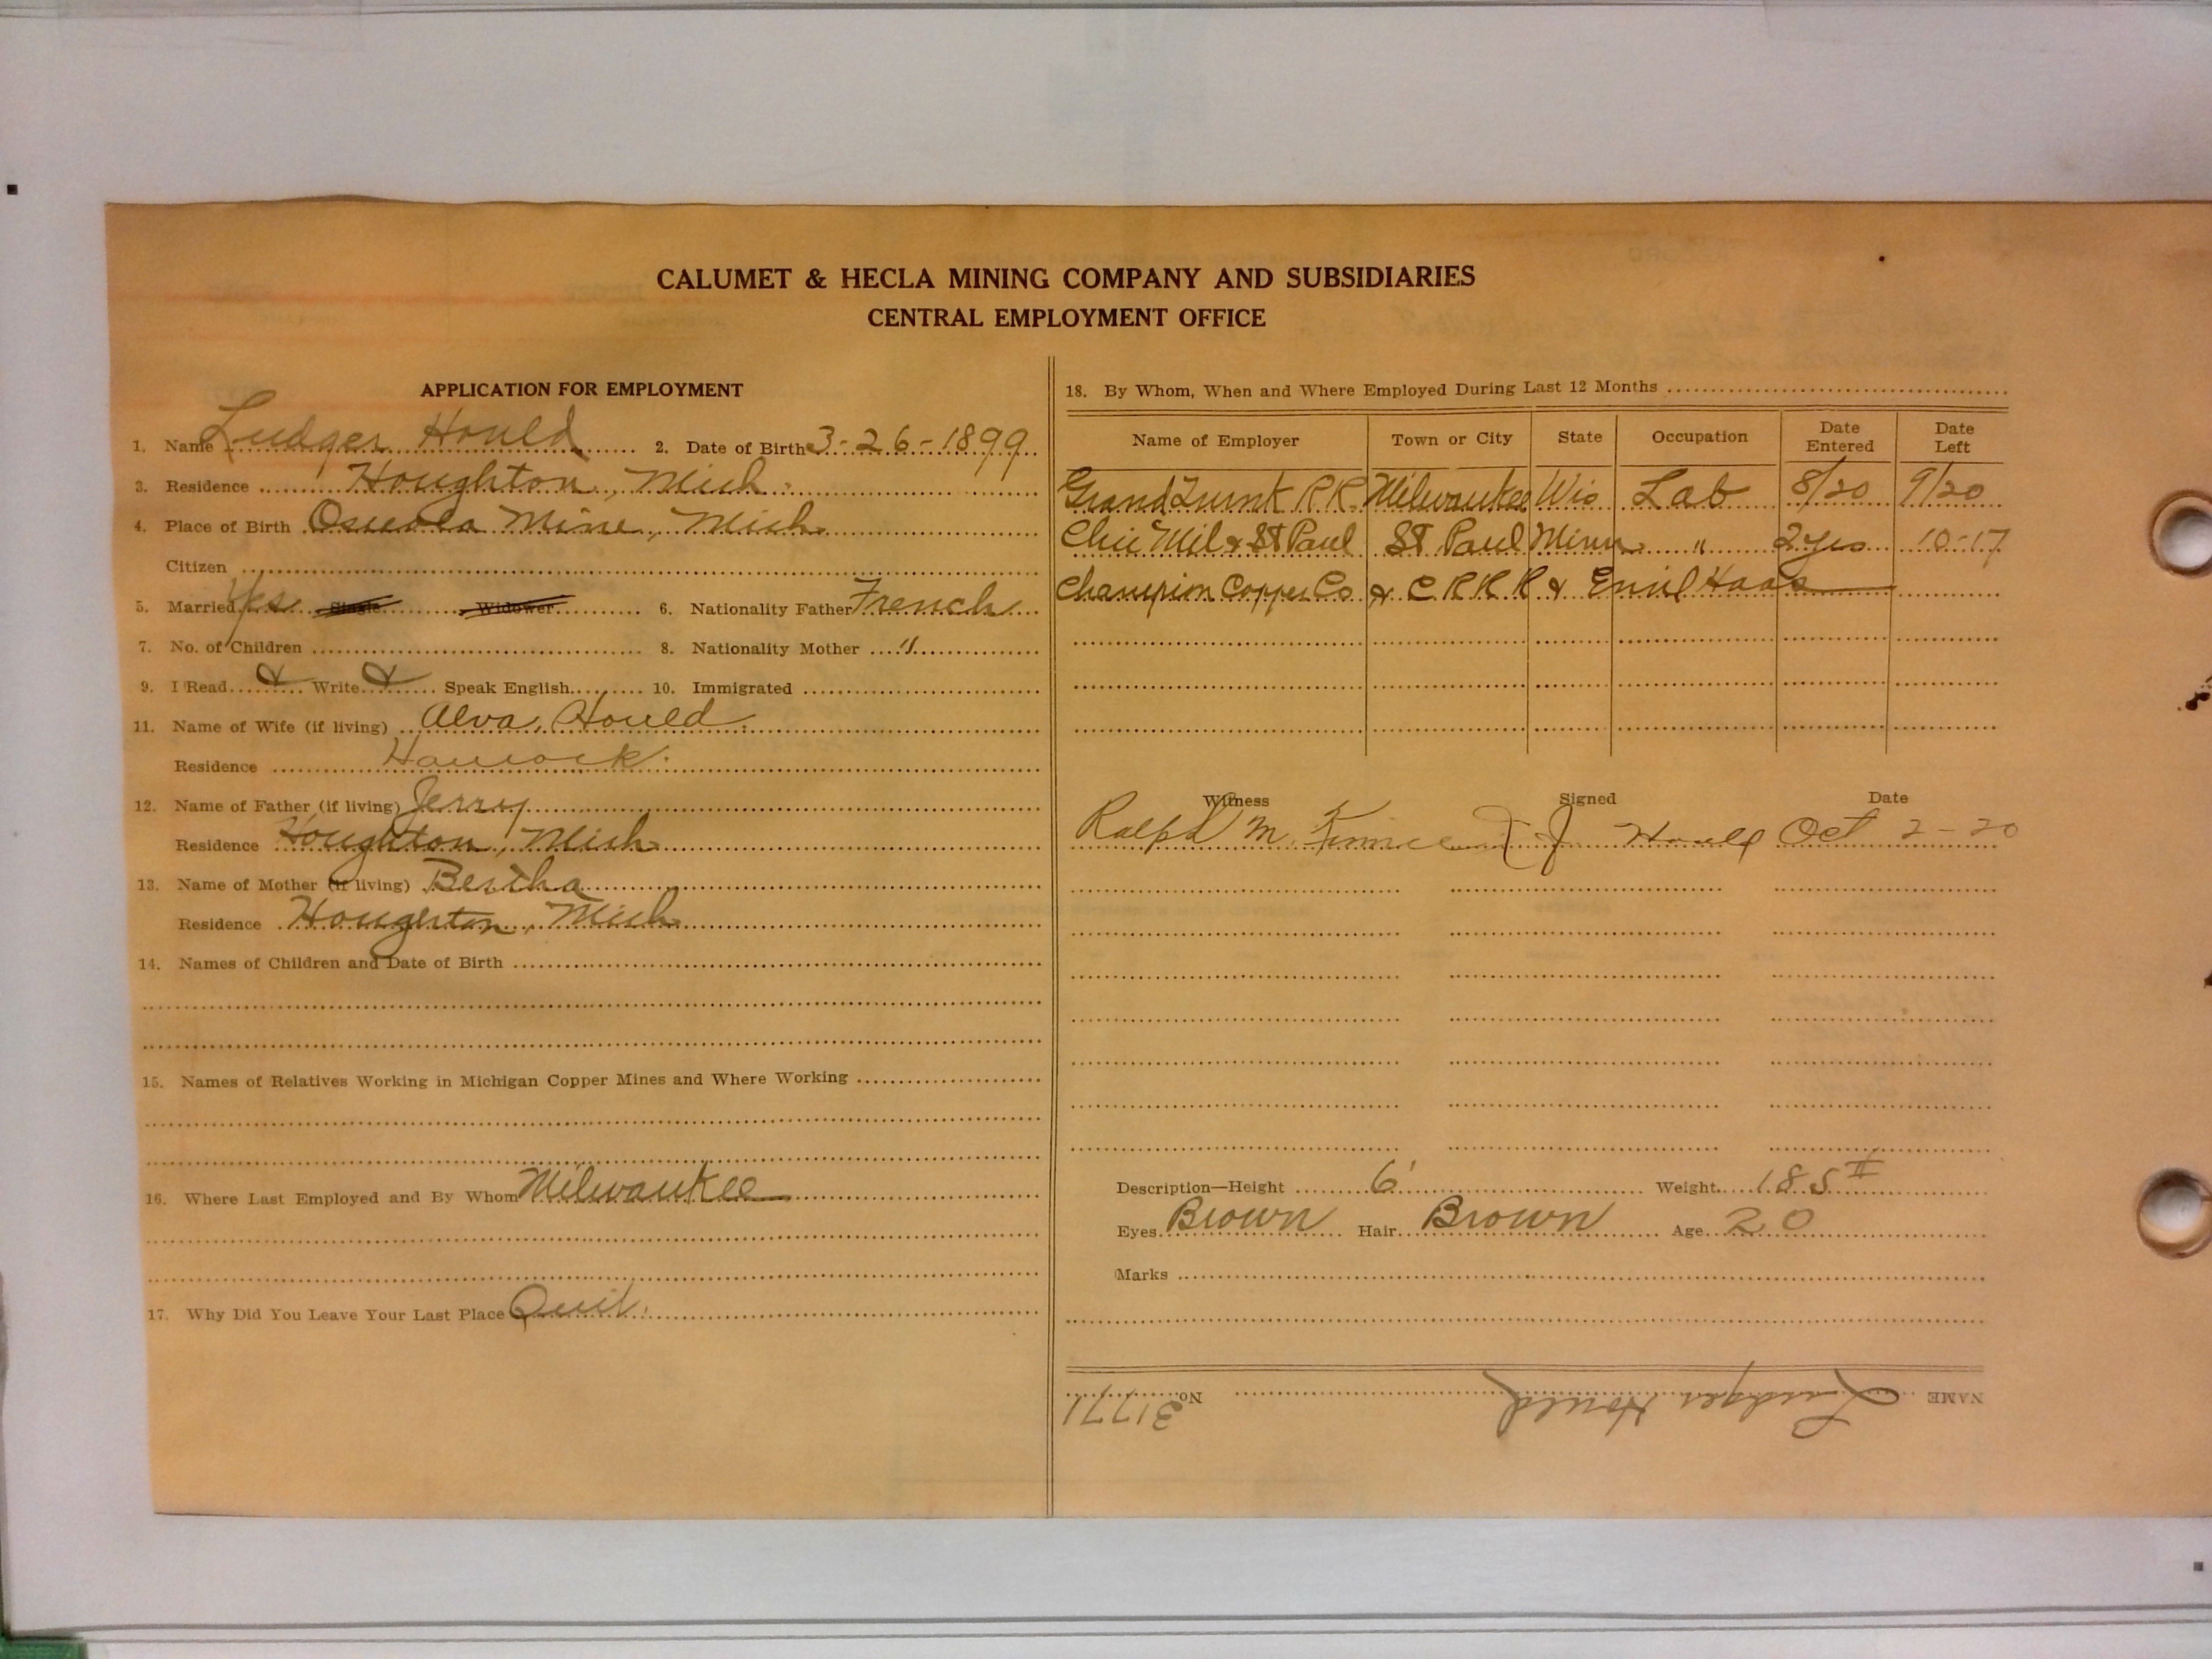 CALUMET & HECLA MINING COMPANY AND SUBSIDIARIES
CENTRAL EMPLOYMENT OFFICE
APPLICATION FOR EMPLOYMENT
1. Name Ludger Hould 2. Date of Birth 3-26-1899
3. Residence Houghton, Mich.
4. Place of Birth Osceola Mine, Mich.
Citizen
5. Married Yes Single Widower 6. Nationality Father French
7. No. of Children 8. Nationality Mother "
9. I Read & Write & Speak English 10. Immigrated
11. Name of Wife (if living) Alva Hould
Residence Hancock
12. Name of Father (if living) Jerry
Residence Houghton, Mich.
13. Name of Mother (if living) Bertha
Residence Houghton, Mich.
14. Names of Children and Date of Birth
15. Names of Relatives Working in Michigan Copper Mines and Where Working
16. Where Last Employed and By Whom Milwaukee
17. Why Did You Leave Your Last Place Quit.
18. By Whom, When and Where Employed During Last 12 Months
Name of Employer Town or City State Occupation Date Entered Date Left
Grand Trunk R R. Milwaukee Wis Lab 8/20 9/20
Chic Mil & St Paul St. Paul Minn " 2 yrs 10-17
Champion Copper Co & C R R R & Emil Haas
Witness Signed Date
Ralph M. J Hould Oct 2-20
Description—Height 6' Weight 185#
Eyes Brown Hair Brown Age 20
Marks
NAME Ludger Hould No. 31771